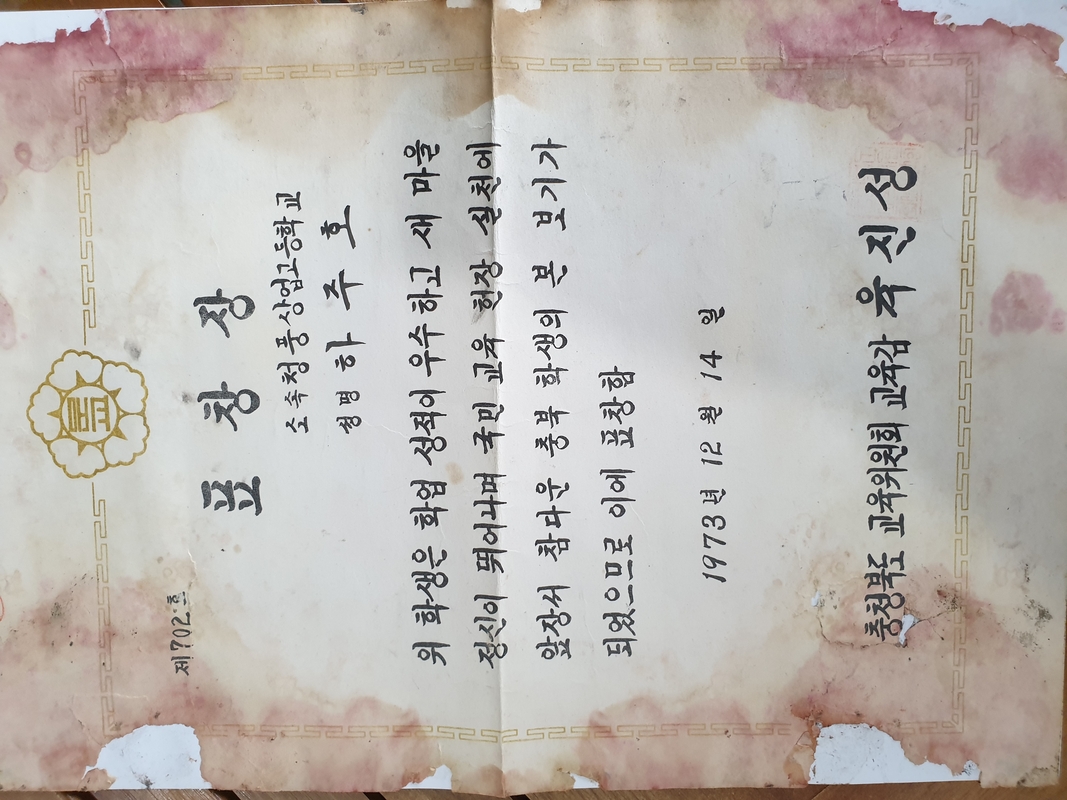 제702·호
표 창 장
소속 청풍상업고등학교
성명 하 주 호
위 학생은 학업 성적이 우수하고 새 마을
정신이 뛰어나며 국민 교육 헌장 실천에
앞장서 참다운 충북 학생의 본 보기가
되었으므로 이에 표창함
1973년 12월 14일
충청북도 교육위원회 교육감 육 진 성